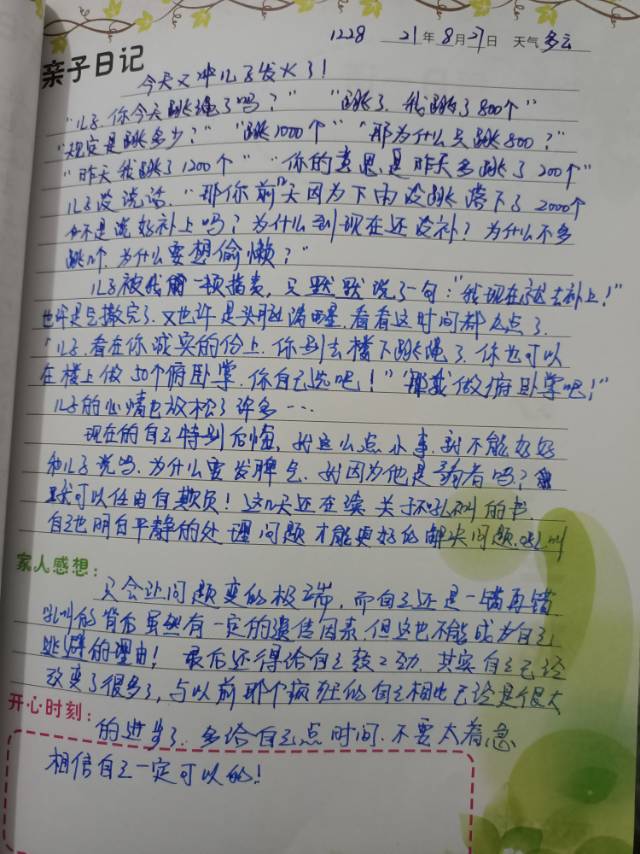 1228 21年8月27日 天气 多云
亲子日记
今天又冲儿子发火了！
"儿子，你今天跳绳了吗？" "跳了，我跳了800个"
"规定是跳多少？" "跳1000个" "那为什么只跳800？"
"昨天我跳了1200个" "你的意思是昨天多跳了200个"
儿子没说话，"那你前几天因为下雨没跳落下了2000个
不是说好补上吗？为什么到现在还没补？为什么不多
跳几个，为什么要想偷懒？"
儿子被我一顿指责，只默默说了一句："我现在就去补上！"
也许是气撒完了，又也许是头脑清醒，看看这时间都么点了，
"儿子，看在你诚实的份上，你别去楼下跳绳了，你也可以
在楼上做50个俯卧撑，你自己说吧！" "那我做俯卧撑吧！"
儿子的心情也放松了许多…
现在的自己特别后悔，就这么点小事，就不能好好
和儿子说吗，为什么要发脾气，就因为他是弱者吗？
就可以任由自己欺负！这几天还在读关于不吼叫的书，
自己也明白平静的处理问题才能更好的解决问题，吼叫
家人感想：
只会让问题变的极端，而自己还是一错再错
吼叫的背后虽然有一定的遗传因素，但这也不能成为自己
逃避的理由！最后还得给自己鼓鼓劲，其实自己已经
改变了很多了，与以前那个疯狂的自己相比已经是很大
开心时刻：
的进步了，多给自己点时间，不要太着急
相信自己一定可以的！